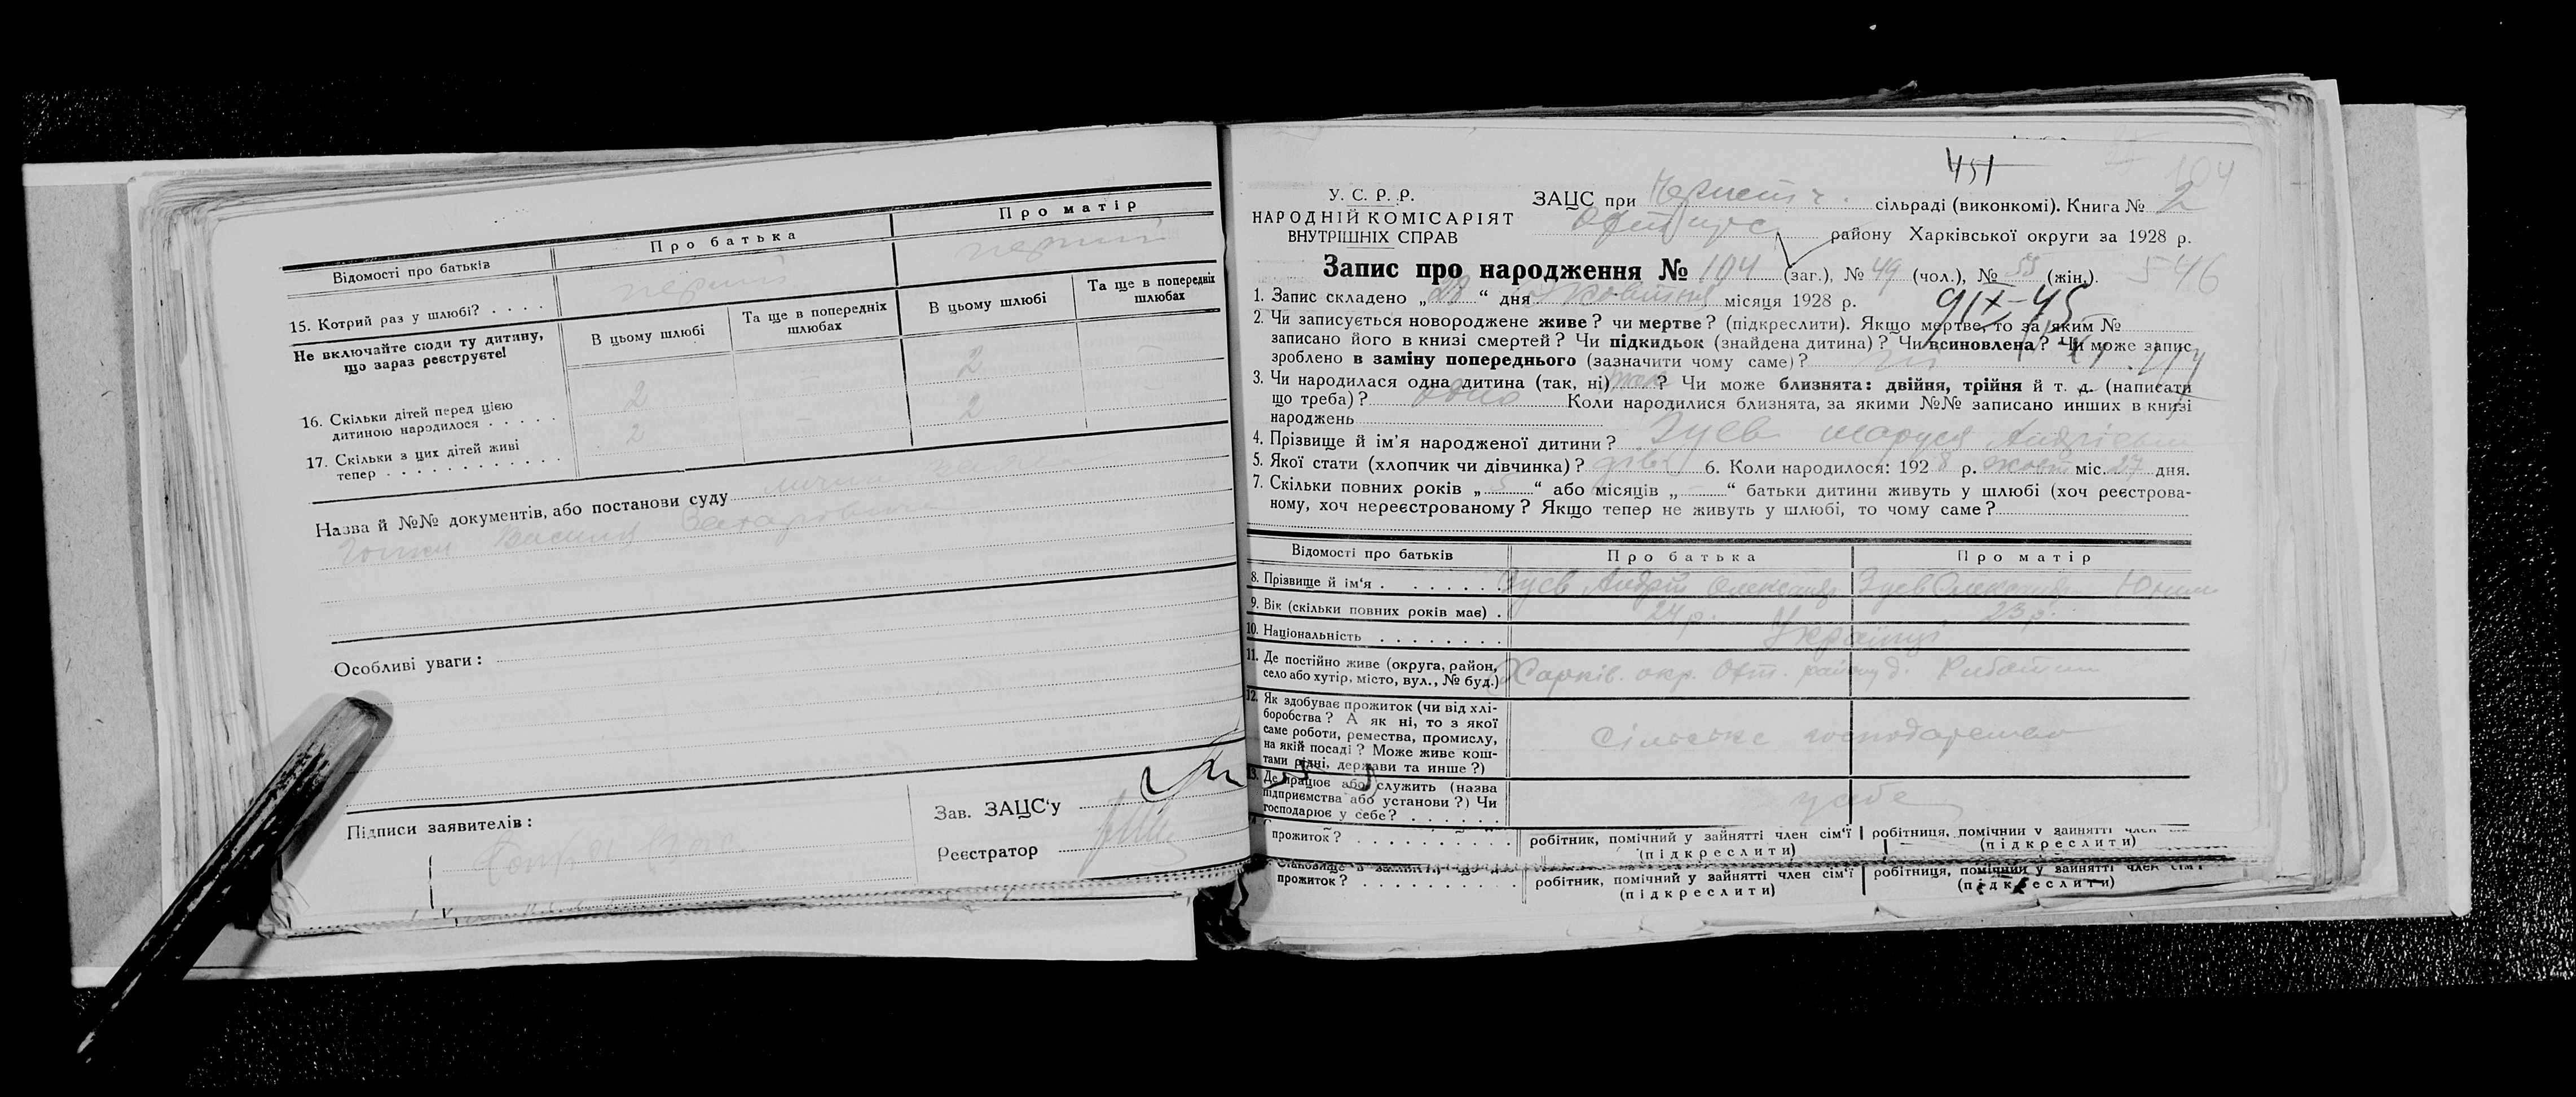 Відомості про батьків
Про батька
Про матір
15. Котрий раз у шлюбі? . . . .
перший
перший
Не включайте сюди ту дитину,
що зараз реєструєте!
В цьому шлюбі
Та ще в попередніх
шлюбах
В цьому шлюбі
Та ще в попередніх
шлюбах
16. Скільки дітей перед цією
дитиною народилося . . . . .
2
—
2
—
17. Скільки з цих дітей живі
тепер . . . . . . . . . . . .
2
2
—
Назва й №№ документів, або постанови суду
Василя Захаровича
Особливі уваги:
Підписи заявителів:
Зав. ЗАЦС'у
Реєстратор
451
104
У. С. Р. Р.
НАРОДНІЙ КОМІСАРІЯТ
ВНУТРІШНІХ СПРАВ
ЗАЦС при сільраді (виконкомі). Книга № 2
району Харківської округи за 1928 р.
Запис про народження № 104 (заг.), № 49 (чол.), № 55 (жін.).
546
1. Запис складено „ “ дня місяця 1928 р.
91X-45
2. Чи записується новороджене живе? чи мертве? (підкреслити). Якщо мертве, то за яким №
записано його в книзі смертей? Чи підкидьок (знайдена дитина)? Чи всиновлена? Чи може запис
зроблено в заміну попереднього (зазначити чому саме)? ні
3. Чи народилася одна дитина (так, ні) так? Чи може близнята: двійня, трійня й т. д. (написати
що треба)? одно Коли народилися близнята, за якими №№ записано инших в книзі
народжень
4. Прізвище й ім'я народженої дитини? Зуєв Маруся Андрієвна
5. Якої стати (хлопчик чи дівчинка)? дівч 6. Коли народилося: 1928 р. жовт міс. 27 дня.
7. Скільки повних років „ 5 “ або місяців „ — “ батьки дитини живуть у шлюбі (хоч реєстрова-
ному, хоч нереєстрованому? Якщо тепер не живуть у шлюбі, то чому саме?
Відомості про батьків
Про батька
Про матір
8. Прізвище й ім'я . . . . . . .
Зуєв Андрій Олександр
Зуєв Олександ
9. Вік (скільки повних років має) .
24 р.
23 р.
10. Національність . . . . . . . .
Українці
11. Де постійно живе (округа, район,
село або хутір, місто, вул., № буд.)
Харків. окр. Охт. району
12. Як здобуває прожиток (чи від хлі-
боробства? А як ні, то з якої
саме роботи, ремества, промислу,
на якій посаді? Може живе кош-
тами рідні, держави та инше?)
Сільське господарство
13. Де працює або служить (назва
підприємства або установи?) Чи
господарює у себе? . . . . . .
у себе
прожиток? . . . . . . . . . .
робітник, помічний у зайнятті член сім'ї
(підкреслити)
робітниця, помічний у зайнятті член
(підкреслити)
прожиток? . . . . . . . . . .
робітник, помічний у зайнятті член сім'ї
(підкреслити)
робітниця, помічний у зайнятті член сім'ї
(підкреслити)